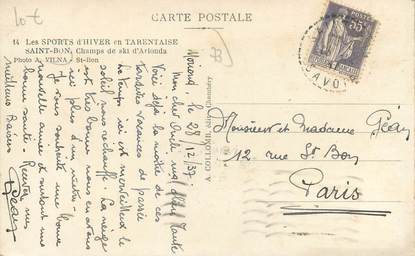 CARTE POSTALE
14 Les SPORTS d'HIVER en TARENTAISE
SAINT-BON, Champs de ski d'Arionda
Photo A. VILNA - St-Bon
Moriond, le 28/12/37
Mon cher Oncle ma chère Tante
Voici déjà la moitié de ces
vacances de passée
Le temps ici est merveilleux le
soleil nous réchauffe. La neige
est très bonne nous en avons
ici plus d'un mètre -
Je vous souhaite une bonne
nouvelle année et surtout une
bonne santé. Recevez mes
meilleurs Baisers
Jean
Monsieur et Madame Péan
12 rue St Bon
Paris
55c